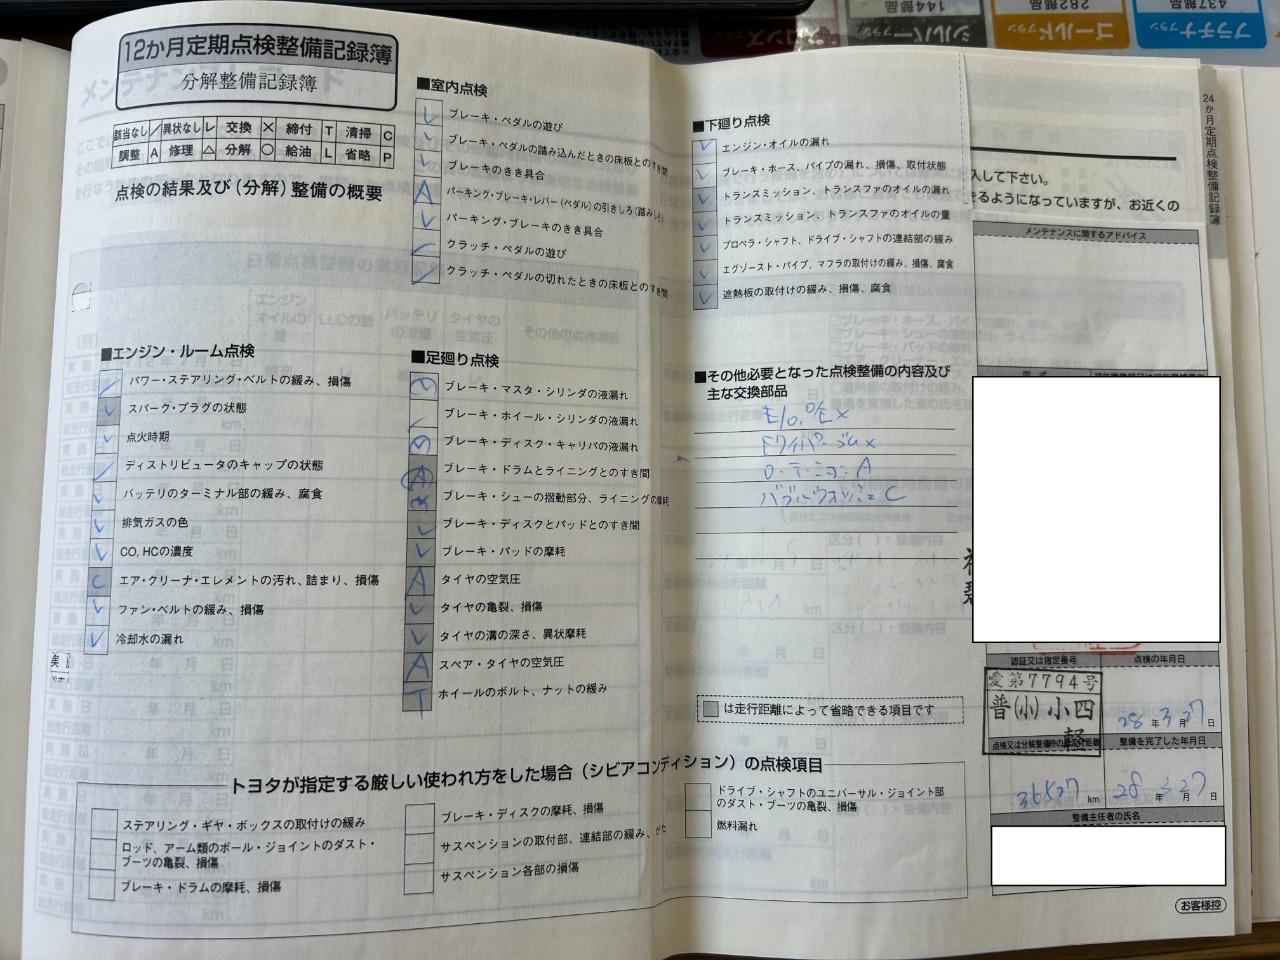 12か月定期点検整備記録簿
分解整備記録簿
該当なし / 異状なし レ 交換 × 締付 T 清掃 C
調整 A 修理 △ 分解 ○ 給油 L 省略 P
点検の結果及び(分解)整備の概要
■エンジン・ルーム点検
パワー・ステアリング・ベルトの緩み、損傷
スパーク・プラグの状態
点火時期
ディストリビュータのキャップの状態
バッテリのターミナル部の緩み、腐食
排気ガスの色
CO, HCの濃度
C エア・クリーナ・エレメントの汚れ、詰まり、損傷
ファン・ベルトの緩み、損傷
冷却水の漏れ
■室内点検
ブレーキ・ペダルの遊び
ブレーキ・ペダルの踏み込んだときの床板とのすき間
ブレーキのきき具合
A パーキング・ブレーキ・レバー(ペダル)の引きしろ(踏みしろ)
パーキング・ブレーキのきき具合
クラッチ・ペダルの遊び
クラッチ・ペダルの切れたときの床板とのすき間
■足廻り点検
ブレーキ・マスタ・シリンダの液漏れ
ブレーキ・ホイール・シリンダの液漏れ
ブレーキ・ディスク・キャリパの液漏れ
A ブレーキ・ドラムとライニングとのすき間
ブレーキ・シューの摺動部分、ライニングの摩耗
ブレーキ・ディスクとパッドとのすき間
ブレーキ・パッドの摩耗
A タイヤの空気圧
タイヤの亀裂、損傷
タイヤの溝の深さ、異状摩耗
A スペア・タイヤの空気圧
T ホイールのボルト、ナットの緩み
■下廻り点検
エンジン・オイルの漏れ
ブレーキ・ホース、パイプの漏れ、損傷、取付状態
トランスミッション、トランスファのオイルの漏れ
トランスミッション、トランスファのオイルの量
プロペラ・シャフト、ドライブ・シャフトの連結部の緩み
エグゾースト・パイプ、マフラの取付けの緩み、損傷、腐食
遮熱板の取付けの緩み、損傷、腐食
■その他必要となった点検整備の内容及び
主な交換部品
E/O. O/E ×
ゴム ×
A
C
は走行距離によって省略できる項目です
トヨタが指定する厳しい使われ方をした場合(シビアコンディション)の点検項目
ステアリング・ギヤ・ボックスの取付けの緩み
ロッド、アーム類のボール・ジョイントのダスト・
ブーツの亀裂、損傷
ブレーキ・ドラムの摩耗、損傷
ブレーキ・ディスクの摩耗、損傷
サスペンションの取付部、連結部の緩み、がた
サスペンション各部の損傷
ドライブ・シャフトのユニバーサル・ジョイント部
のダスト・ブーツの亀裂、損傷
燃料漏れ
入して下さい。
きるようになっていますが、お近くの
メンテナンスに関するアドバイス
24か月定期点検整備記録簿
認証又は指定番号
点検の年月日
愛第7794号
普(小)小四
軽
28年3月27日
点検又は分解整備時の総走行距離
整備を完了した年月日
36527 km
28年3月27日
整備主任者の氏名
お客様控
シルバープラン
144部品
ゴールドプラン
282部品
プラチナプラン
437部品